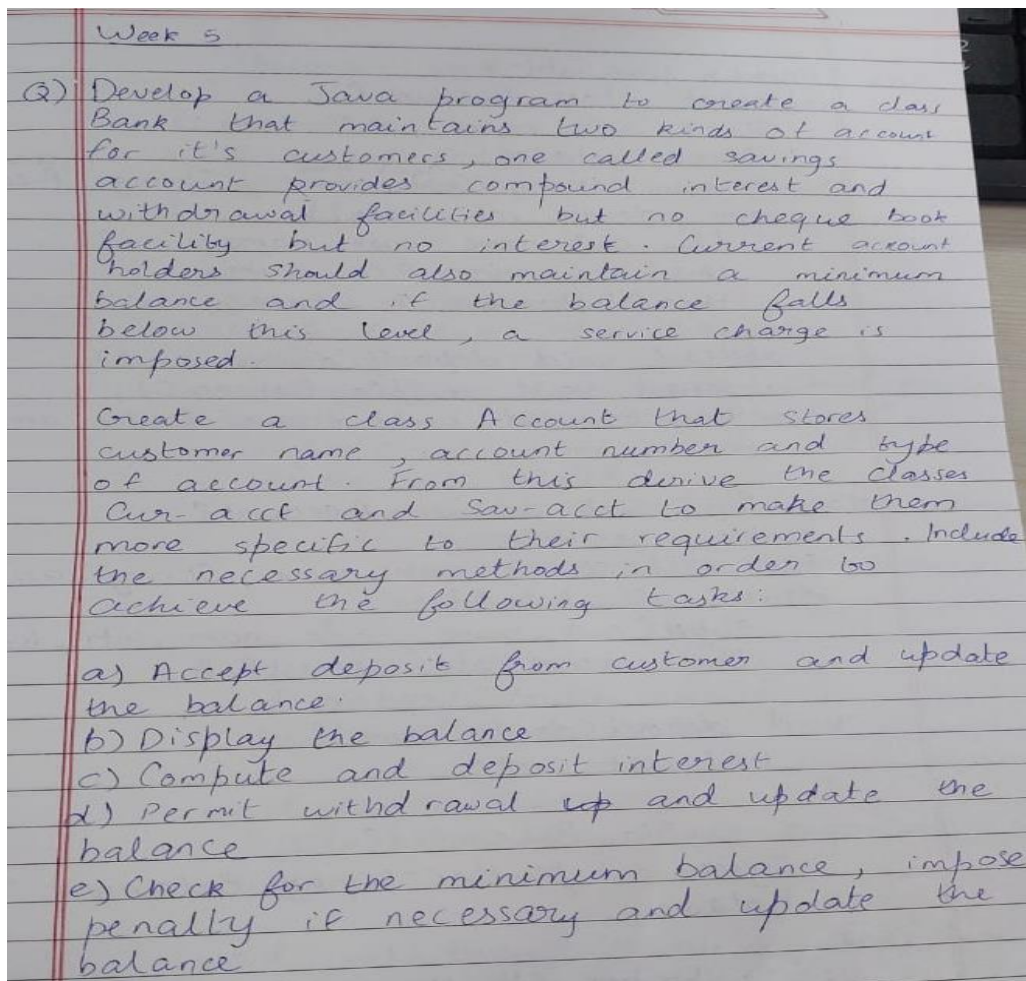 Week 5
Q) Develop a Java program to create a class
Bank that maintains two kinds of account
for it's customers, one called savings
account provides compound interest and
withdrawal facilities but no cheque book
facility but no interest. Current account
holders should also maintain a minimum
balance and if the balance falls
below this level, a service charge is
imposed.
Create a class Account that stores
customer name, account number and type
of account. From this derive the classes
Cur-acct and Sav-acct to make them
more specific to their requirements. Include
the necessary methods in order to
achieve the following tasks:
a) Accept deposit from customer and update
the balance.
b) Display the balance
c) Compute and deposit interest
d) Permit withdrawal up and update the
balance
e) Check for the minimum balance, impose
penalty if necessary and update the
balance